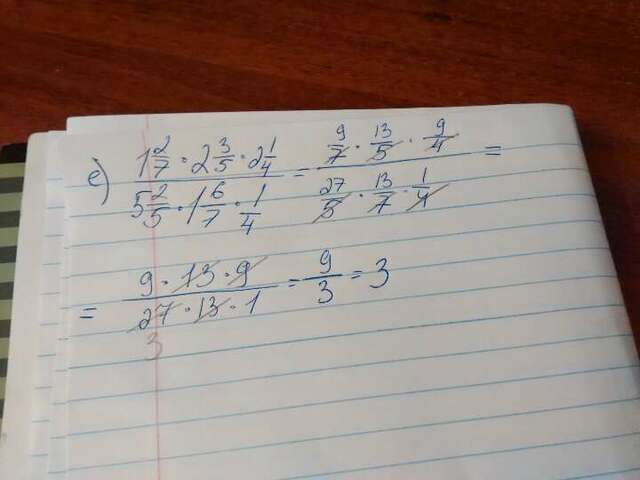 е) \frac{1\frac{2}{7} \cdot 2\frac{3}{5} \cdot 2\frac{1}{4}}{5\frac{2}{5} \cdot 1\frac{6}{7} \cdot \frac{1}{4}} = \frac{\frac{9}{7} \cdot \frac{13}{5} \cdot \frac{9}{4}}{\frac{27}{5} \cdot \frac{13}{7} \cdot \frac{1}{4}} =
= \frac{9 \cdot 13 \cdot 9}{27 \cdot 13 \cdot 1} = \frac{9}{3} = 3
3